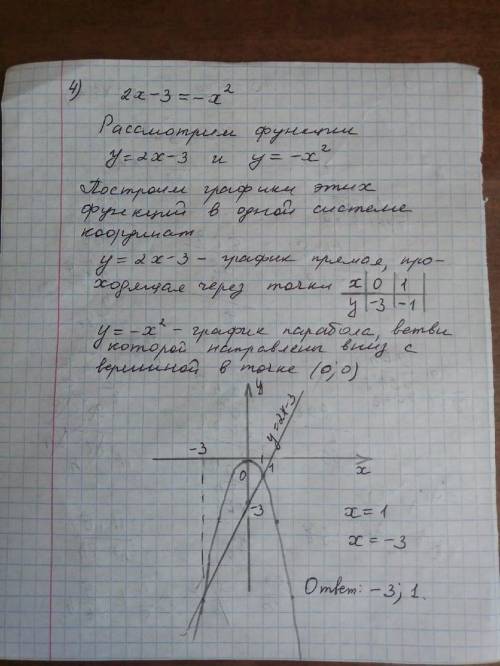 4) 2x-3=-x²
Рассмотрим функции
y=2x-3 и y=-x²
Построим графики этих
функций в одной системе
координат
y=2x-3 - график прямая, про-
ходящая через точки x | 0 | 1
y | -3 | -1
y=-x² - график парабола, ветви
которой направлены вниз с
вершиной в точке (0;0)
y
y=2x-3
-3
0
1
x
-3
x=1
x=-3
Ответ: -3; 1.